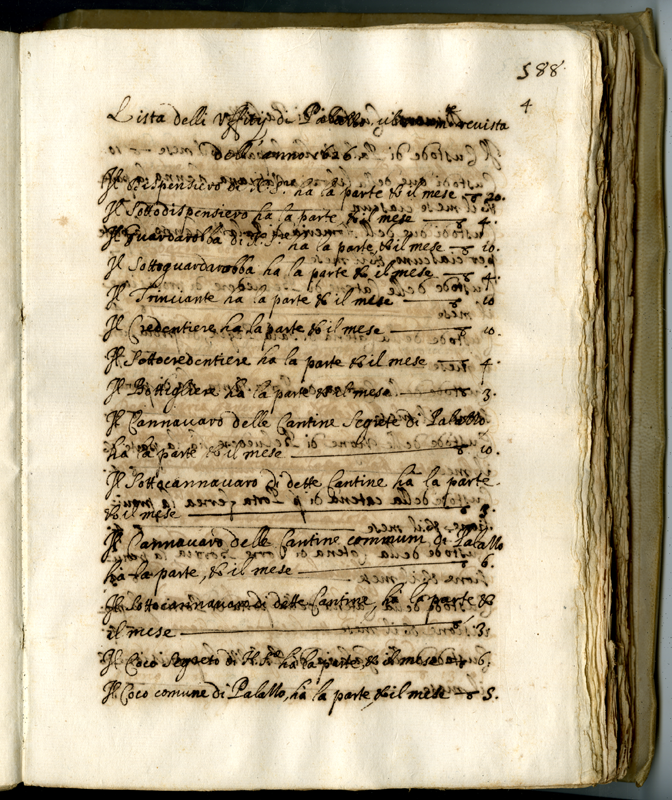 588.
4
Lista delli Uffitij di Palazzo,
dell'anno 1626.
Il Dispensiero di N. S. ha la parte, & il mese — ▽ 20.
Il Sottodispensiero ha la parte, & il mese — ▽ 4.
Il Guardarobba di N. S. ha la parte, & il mese — ▽ 10.
Il Sottoguardarobba ha la parte & il mese — ▽ 4.
Il Trinciante ha la parte & il mese — ▽ 10
Il Credentiere ha la parte & il mese — ▽ 10.
Il Sottocredentiere ha la parte & il mese — ▽ 4.
Il Bottigliere ha la parte & il mese — ▽ 3.
Il Cannavaro delle Cantine Segrete di Palazzo
ha la parte & il mese — ▽ 10.
Il Sottocannavaro di dette Cantine ha la parte
& il mese — ▽ 3.
Il Cannavaro delle Cantine communi di Palazzo
ha la parte, & il mese — ▽ 6.
Il Sottocannavaro di dette Cantine, ha la parte &
il mese — ▽ 3.
Il Coco Segreto di N. S.re ha la parte, & il mese ▽ 6.
Il Coco comune di Palazzo, ha la parte & il mese — ▽ 5.